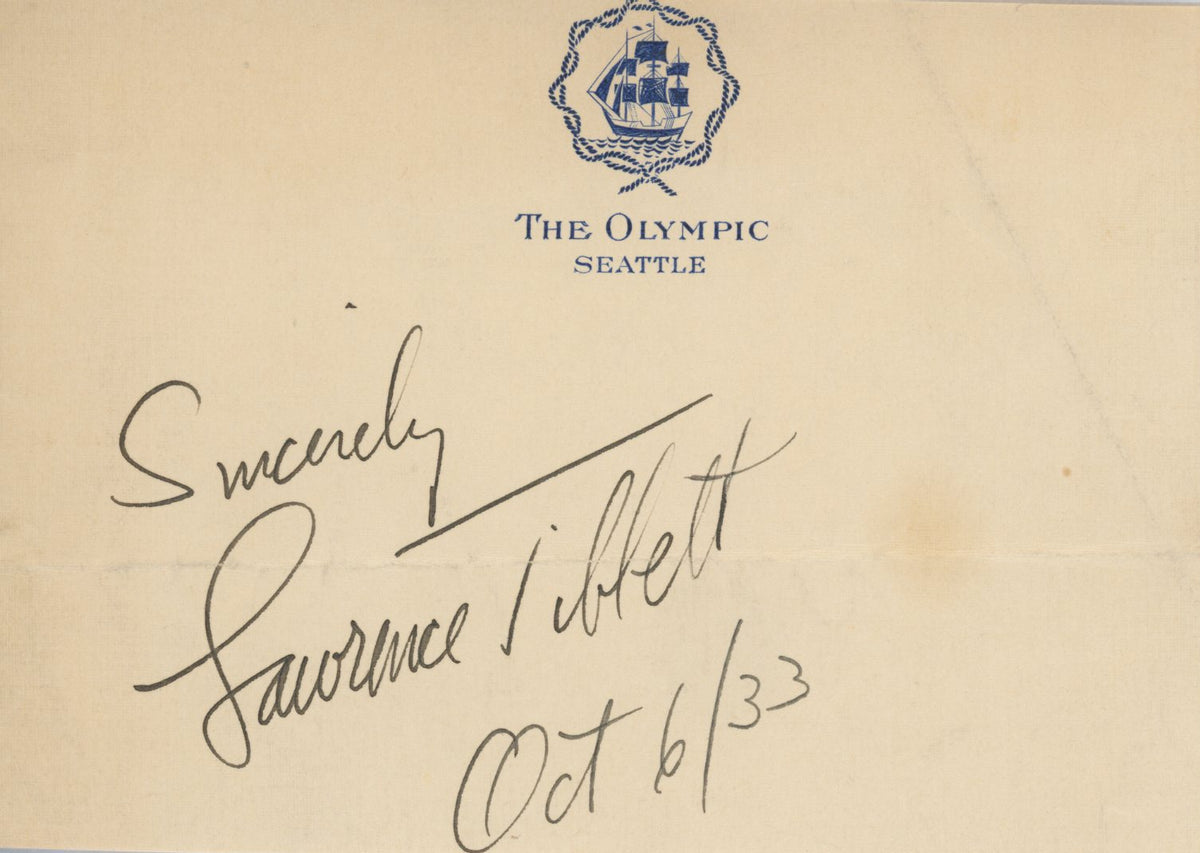 The Olympic
Seattle
Sincerely
Lawrence Tibbett
Oct 6/33